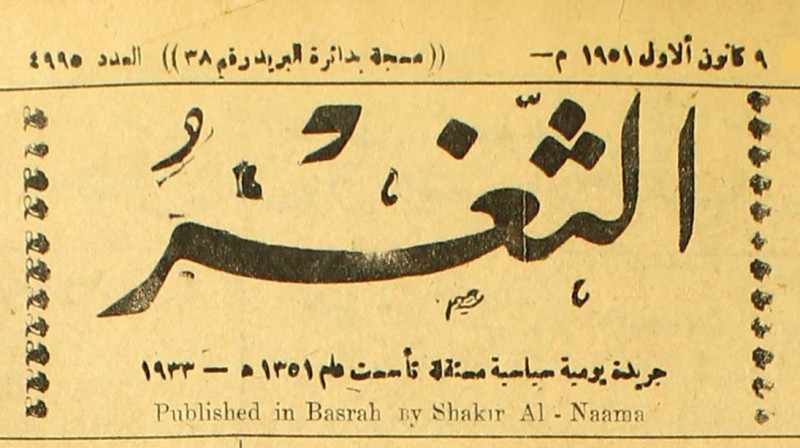 ٩ كانون الاول ١٩٥١ م— ((مسجلة بدائرة البريد رقم ٣٨)) العدد ٤٩٩٥
الثَّغْرُ
جريدة يومية سياسية مستقلة تأسست عام ١٣٥١ ه — ١٩٣٣
Published in Basrah by Shakir Al - Naama